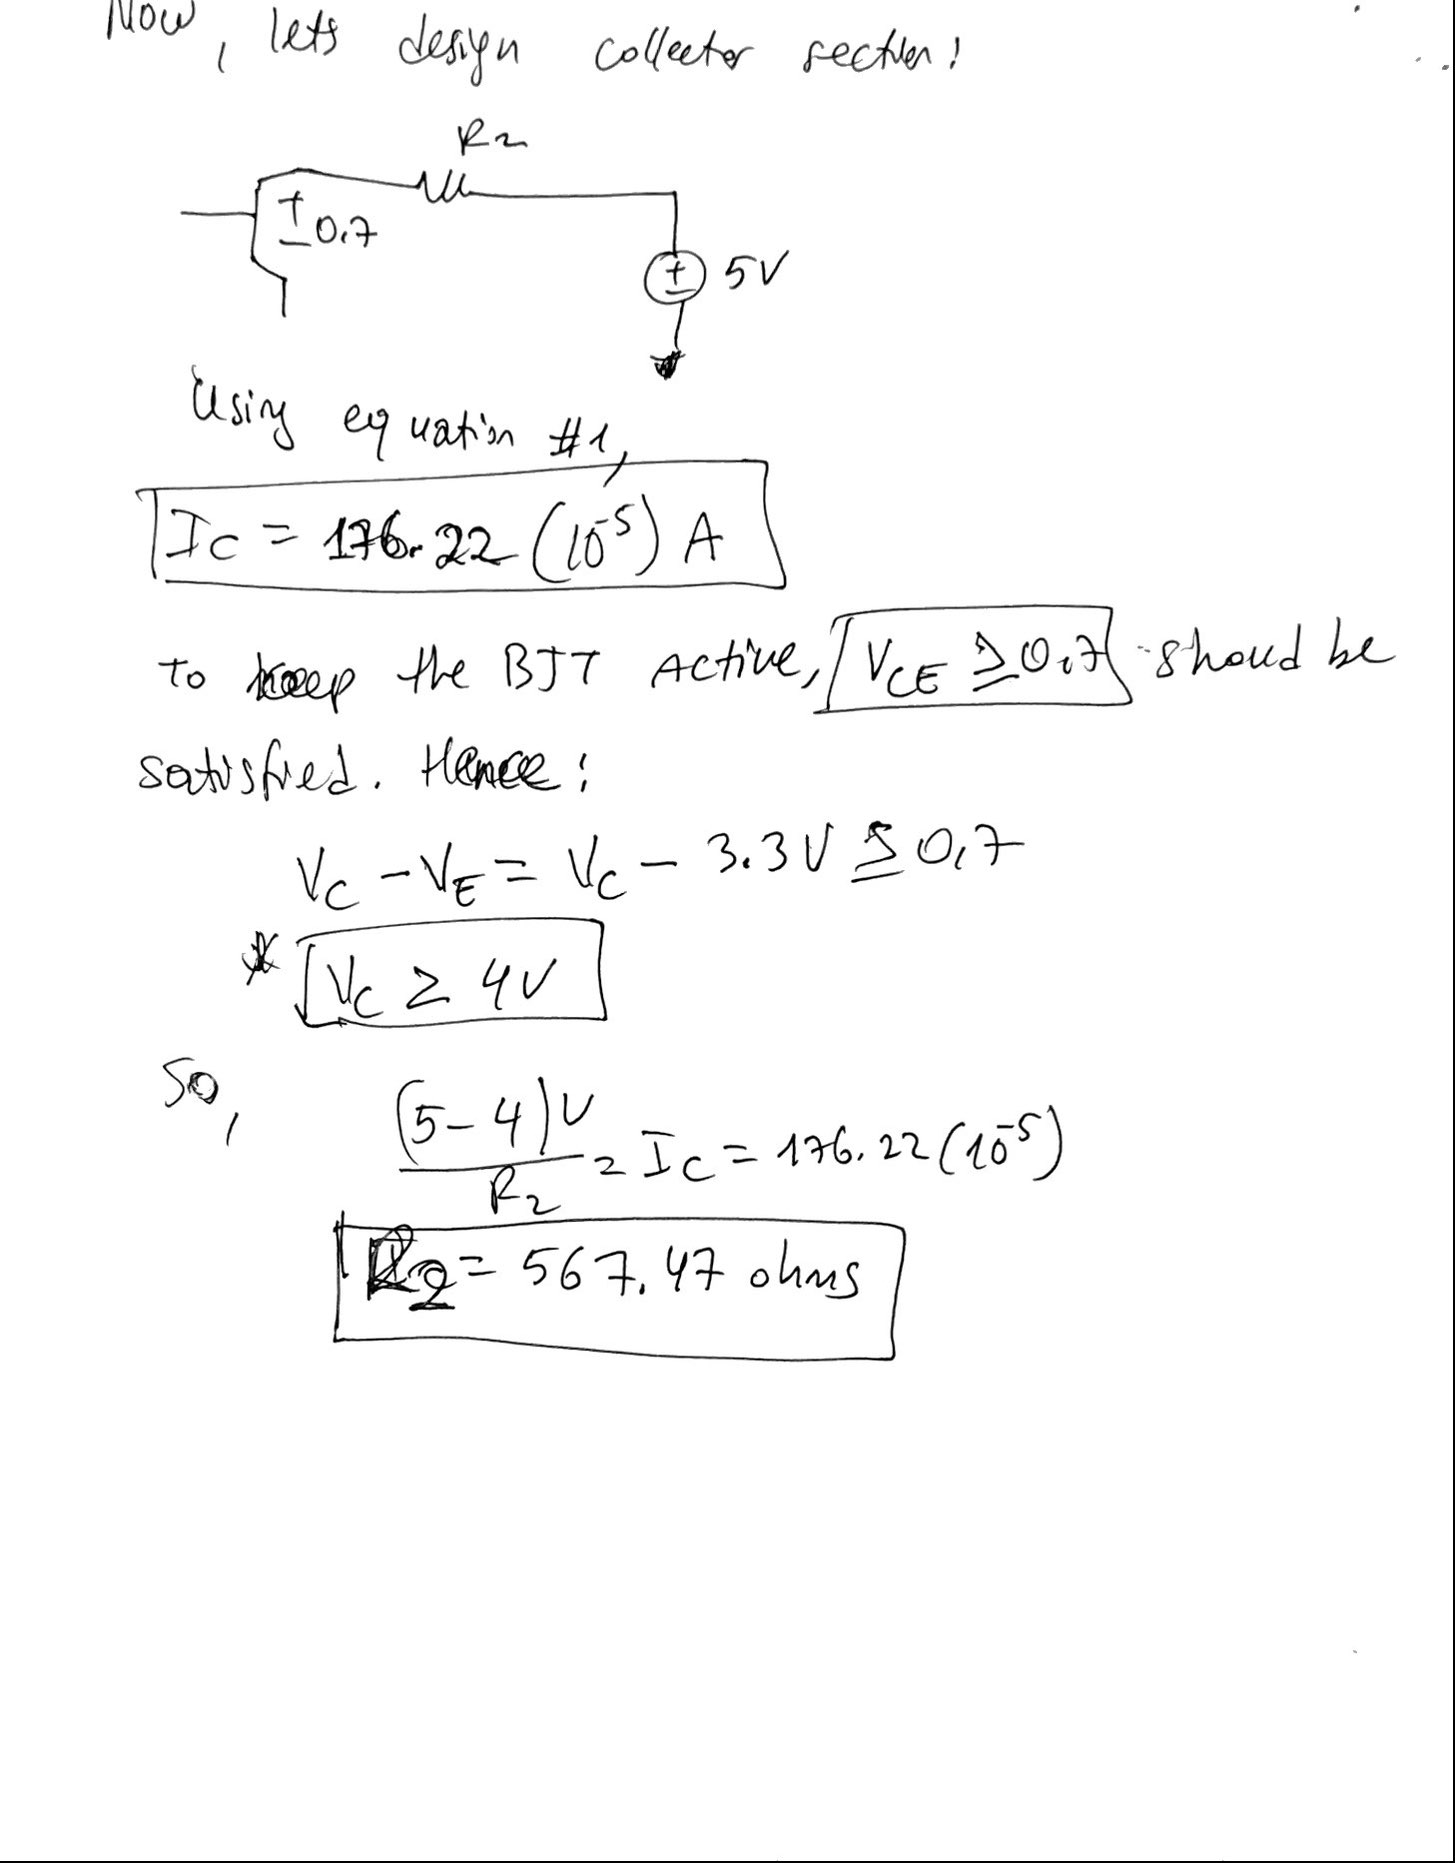 Now, lets design collector section!
R2
+
- 0.7
+
- 5V
Using equation #1,
IC = 176.22 (10^-5) A
to keep the BJT Active, VCE ≥ 0.7 should be
satisfied. Hence:
VC - VE = VC - 3.3V ≥ 0,7
* VC ≥ 4V
So, (5-4)V / R2 = IC = 176.22 (10^-5)
R2 = 567.47 ohms